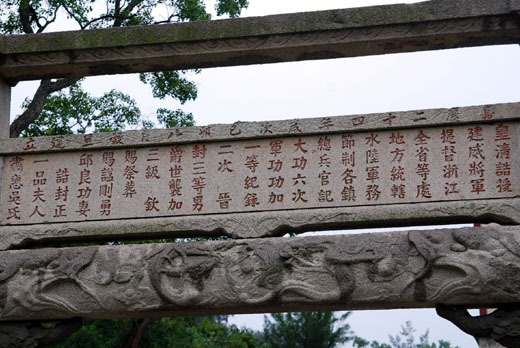 嘉慶二十四年歲次己卯旦建立
皇清誥授
建威將軍
提督浙江
全省等處
地方統轄
水陸軍務
節制各鎮
總兵官記
大功六次
軍功加
一等紀錄
二次晉
封三等男
爵世襲加
二級欽
賜祭葬
賜謚剛勇
邱良功妻
誥封正
一品夫人
吳氏